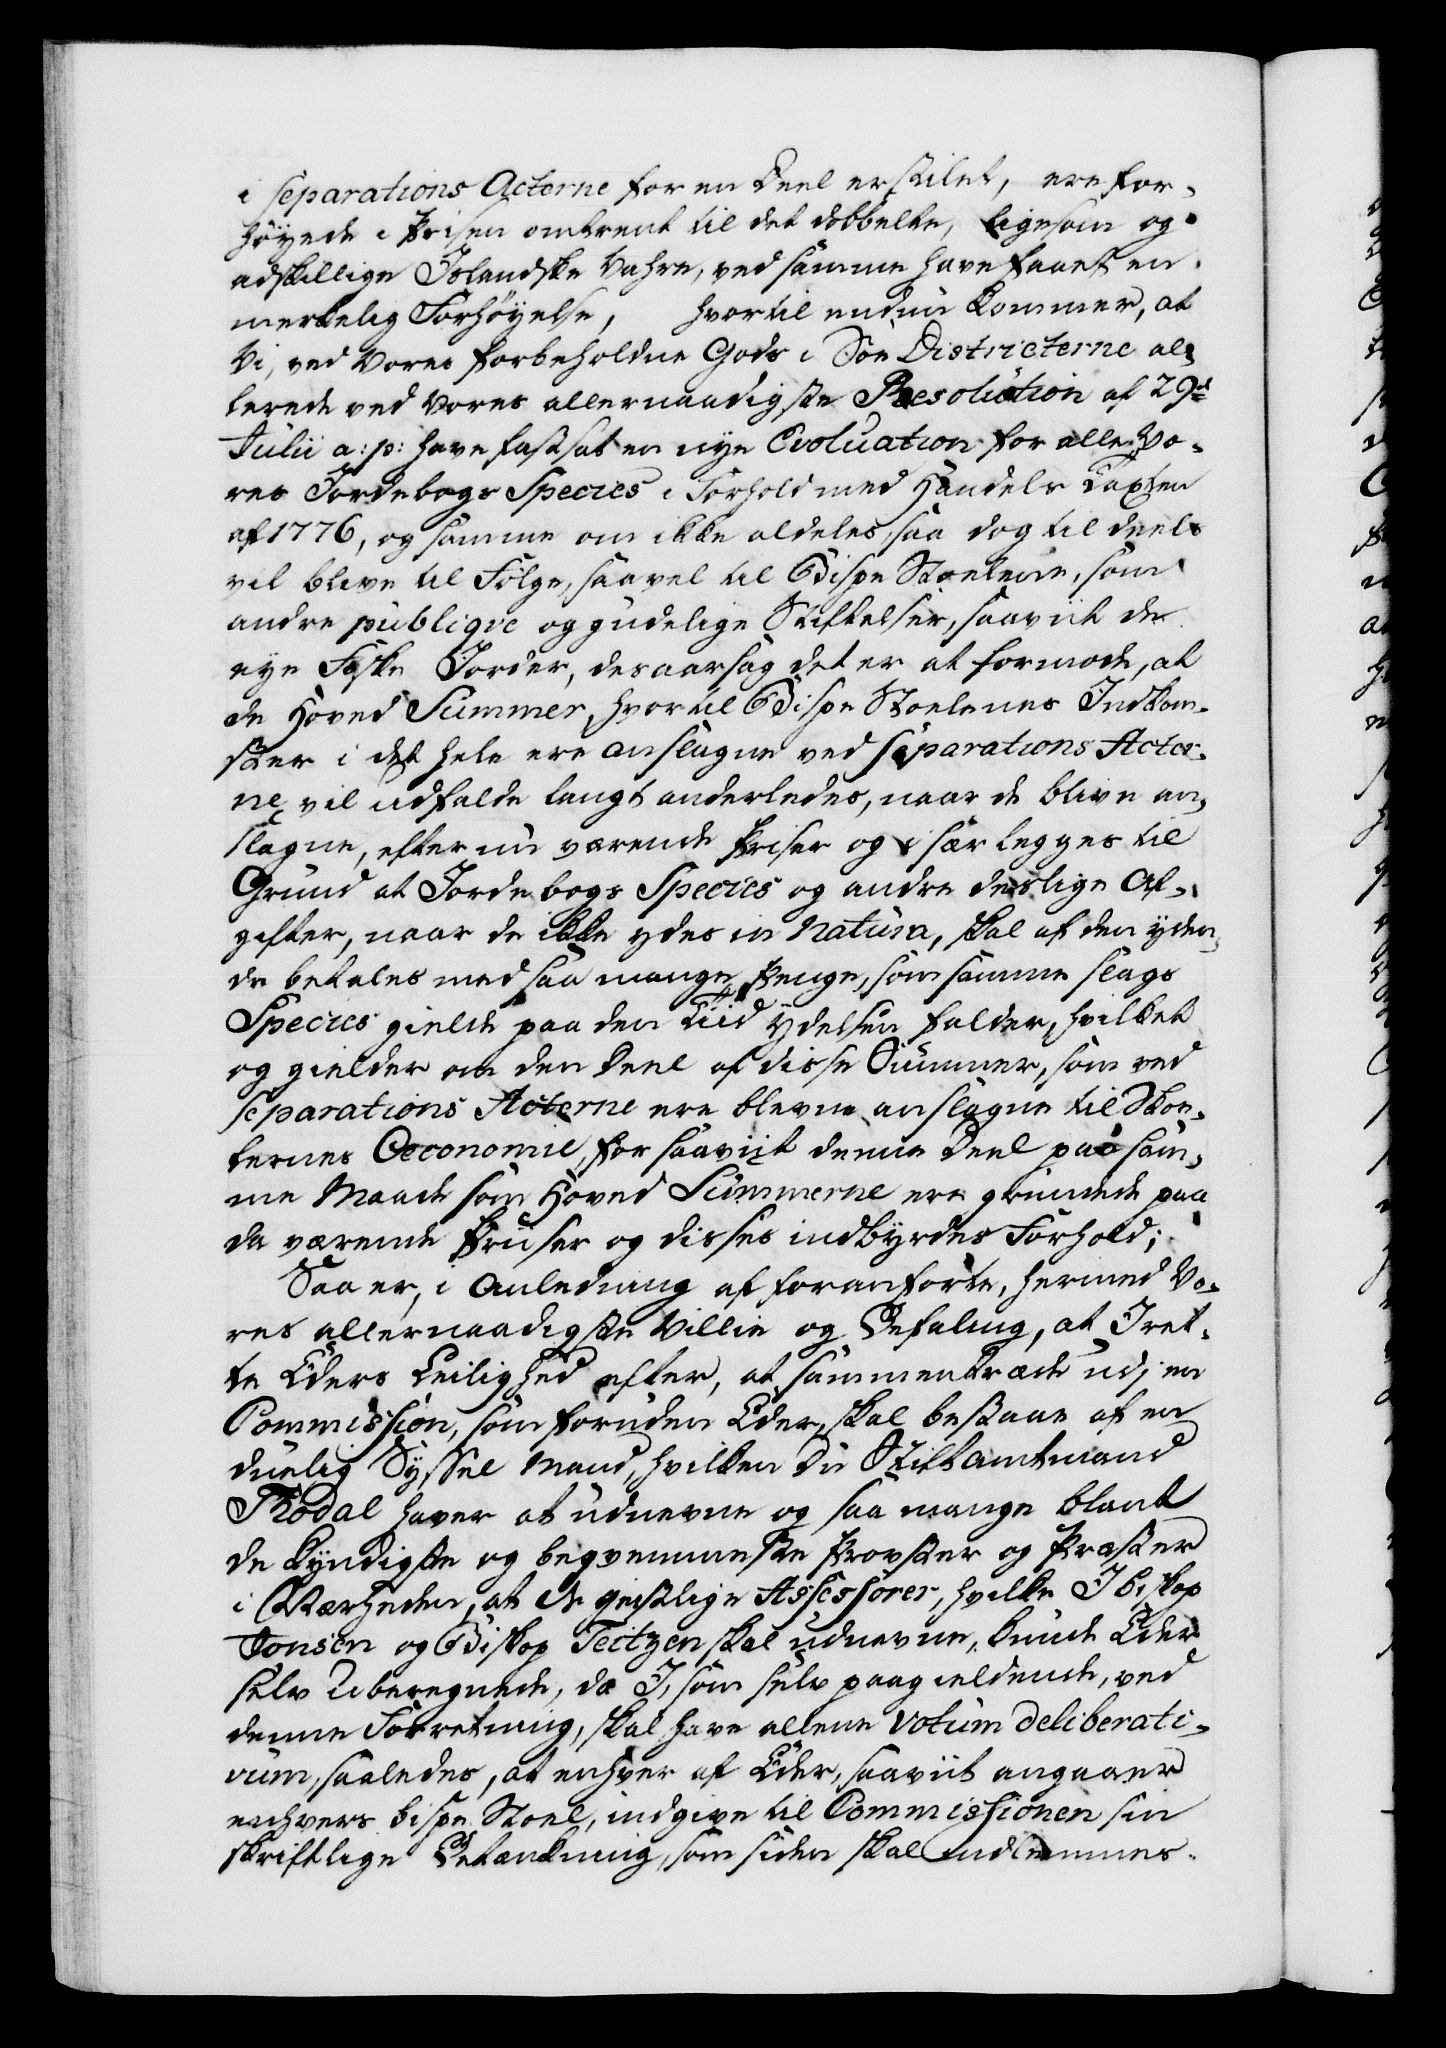 i Separations Acterne for en Deel erstilet, ere for-
høyede i Prisen omtrent til det dobbelte, ligesom og
adskillige Islandske Vahre, ved samme have faaet en
merkelig Forhøyelse, hvortil endnu kommer, at
Vi, ved Vores forbeholdne Gods i Søe Districterne al-
lerede ved Vores allernaadigste Resolution af 29de
Julii a: p: have fastsat en nye Evoluation for alle Vo-
res Jordebogs Species i Forhold med Handels Taxten
af 1776, og samme om ikke aldeles, saa dog til deels
vil blive til Følge, saavel til Bispe Stoelene, som
andre publiqve og gudelige Stiftelser, saaviit de
eye Faste Jorder, desaarsag det er at formode, at
de Hoved Summer, hvortil Bispe Stoelenes Indkom-
ster i det hele ere anslagne ved Separations Acter-
ne, vil udfalde langt anderledes, naar de blive an-
slagne, efter nu værende Priser og i sær legges til
Grund at Jordebogs Species og andre deslige Af-
gifter, naar de ikke ydes in Natura, skal af den yden-
de betales med saa mange Penge, som samme slags
Species gielde paa den Tiid Ydelsen falder, hvilket
og gielder om den Deel af disse Summer, som ved
Separations Acterne ere blevne anslagne til Stoe-
lernes Oeconomie, for saaviit denne Deel paa sam-
me Maade som Hoved Summerne ere grundede paa
da værende Priiser og disses indbyrdes Forhold;
Saa er, i Anledning af foranførte, hermed Vo-
res allernaadigste Villie og Befaling, at I ret-
te Eders Leilighed efter, at sammentræde udj en
Commission, som foruden Eder, skal bestaae af en
duelig Syssel Mand, hvilken Du Stiftamtmand
Thodal haver at udnevne og saa mange blant
de kyndigste og beqvemmeste Provster og Præster
i Nærheden, at de geistlige Assessorer, hvilke I Biskop
Jonsen og Biskop Teitzen skal udnevne, kunde Eder
selv Uberegnede, da I, som selv paagieldende, ved
denne Forretning, skal have allene Votum deliberati-
vum, saaledes, at enhver af Eder, saaviit angaaer
enhvers bispe Stoel, indgive til Commissionen sin
skriftlige Betænkning, som siden skal indlemmes